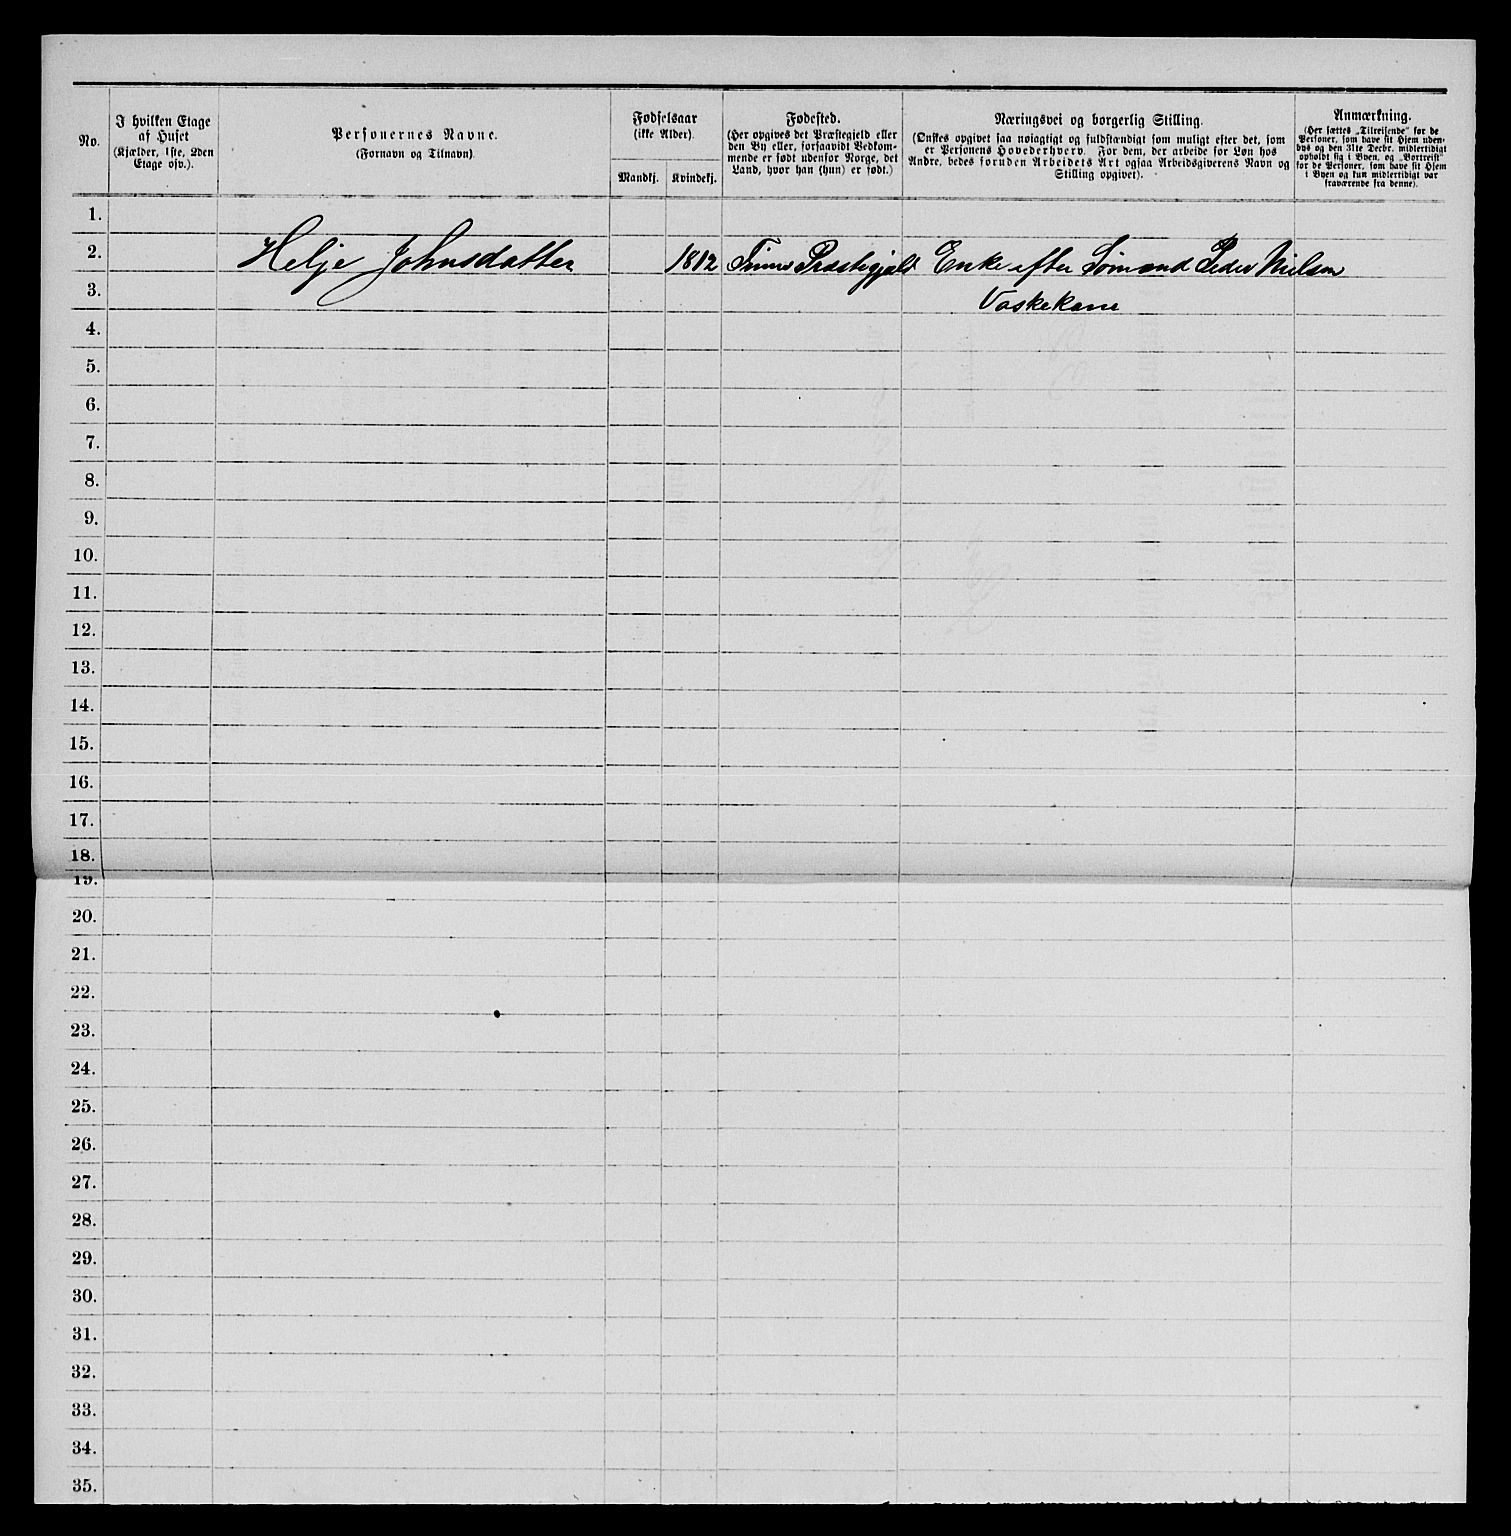 No.
I hvilken Etage
af Huset
(Kjælder, 1ste, 2den
Etage osv.).
Personernes Navne.
(Fornavn og Tilnavn).
Fødselsaar
(ikke Alder).
Mandkj.
Kvindekj.
Fødested.
(Her opgives det Præstegjeld eller
den By eller, forsaavidt Vedkom-
mende er født udenfor Norge, det
Land, hvor han (hun) er født.)
Næringsvei og borgerlig Stilling.
(Ønskes opgivet saa nøiagtigt og fuldstændigt som muligt efter det, som
er Personens Hovederhverv. For dem, der arbeide for Løn hos
Andre, bedes foruden Arbeidets Art ogsaa Arbeidsgiverens Navn og
Stilling opgivet).
Anmærkning.
(Her sættes „Tilreisende" for de
Personer, som have sit Hjem uden-
bys og den 31te Decbr. midlertidigt
opholdt sig i Byen, og „Bortreist"
for de Personer, som have sit Hjem
i Byen og kun midlertidigt var
fraværende fra denne).
1.
2. Helje Johnsdatter 1812 Præstegjeld Enke efter Sømand Peder Nielsen
3. Vaskekone
4.
5.
6.
7.
8.
9.
10.
11.
12.
13.
14.
15.
16.
17.
18.
19.
20.
21.
22.
23.
24.
25.
26.
27.
28.
29.
30.
31.
32.
33.
34.
35.